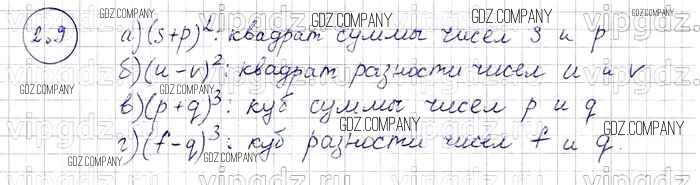 2.9
а) (s+p)²: квадрат суммы чисел s и p
б) (u-v)²: квадрат разности чисел u и v
в) (p+q)³: куб суммы чисел p и q
г) (f-q)³: куб разности чисел f и q.
GDZ.COMPANY
GDZ.COMPANY
GDZ.COMPANY
GDZ.COMPANY
GDZ.COMPANY
GDZ.COMPANY
GDZ.COMPANY
GDZ.COMPANY
GDZ.COMPANY